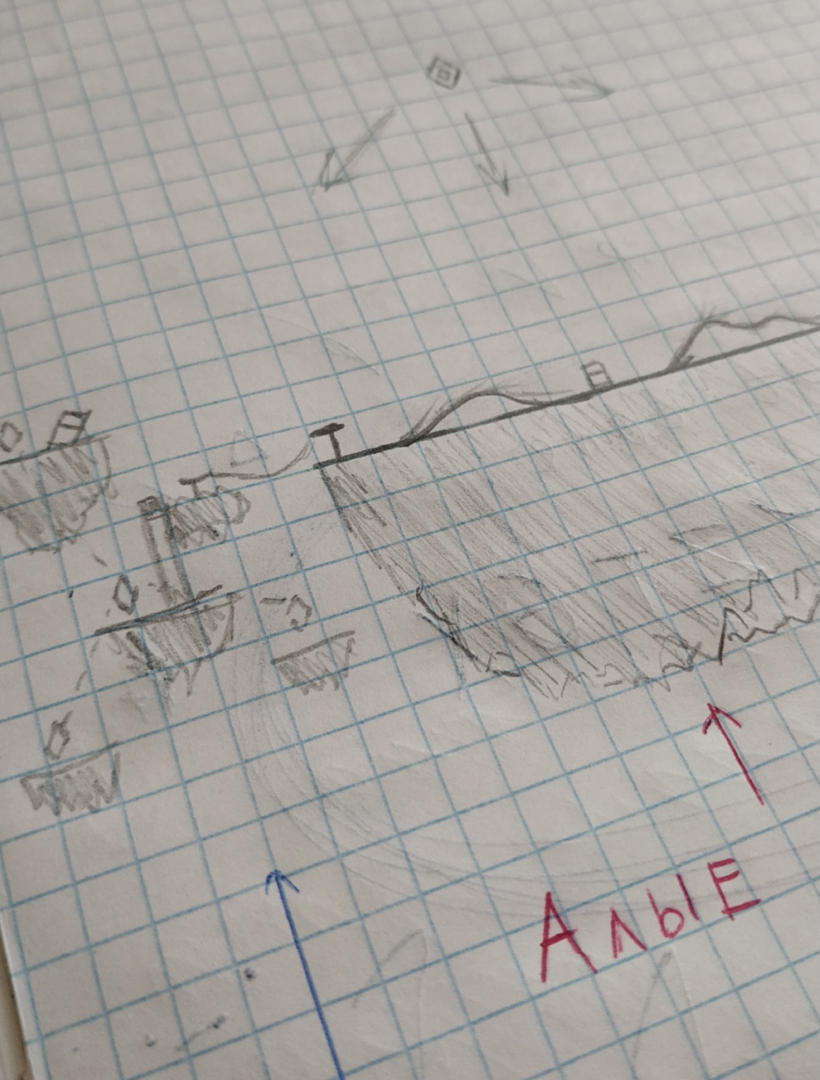 АлЫЕ